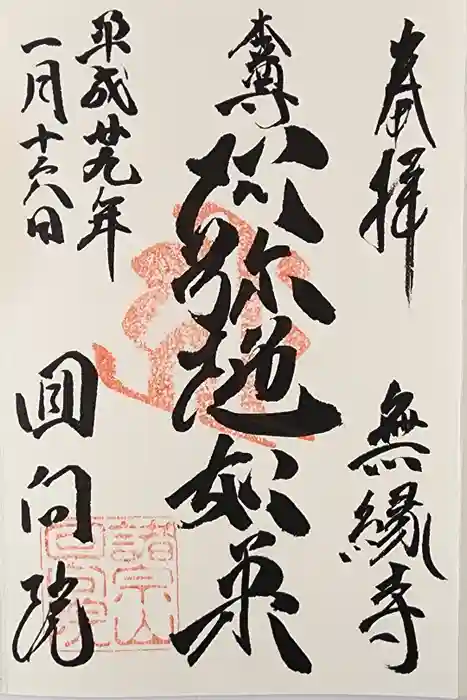 奉拝
無縁寺
本尊
阿弥陀如来
平成廿九年
一月十六日
回向院
諸宗山
回向院